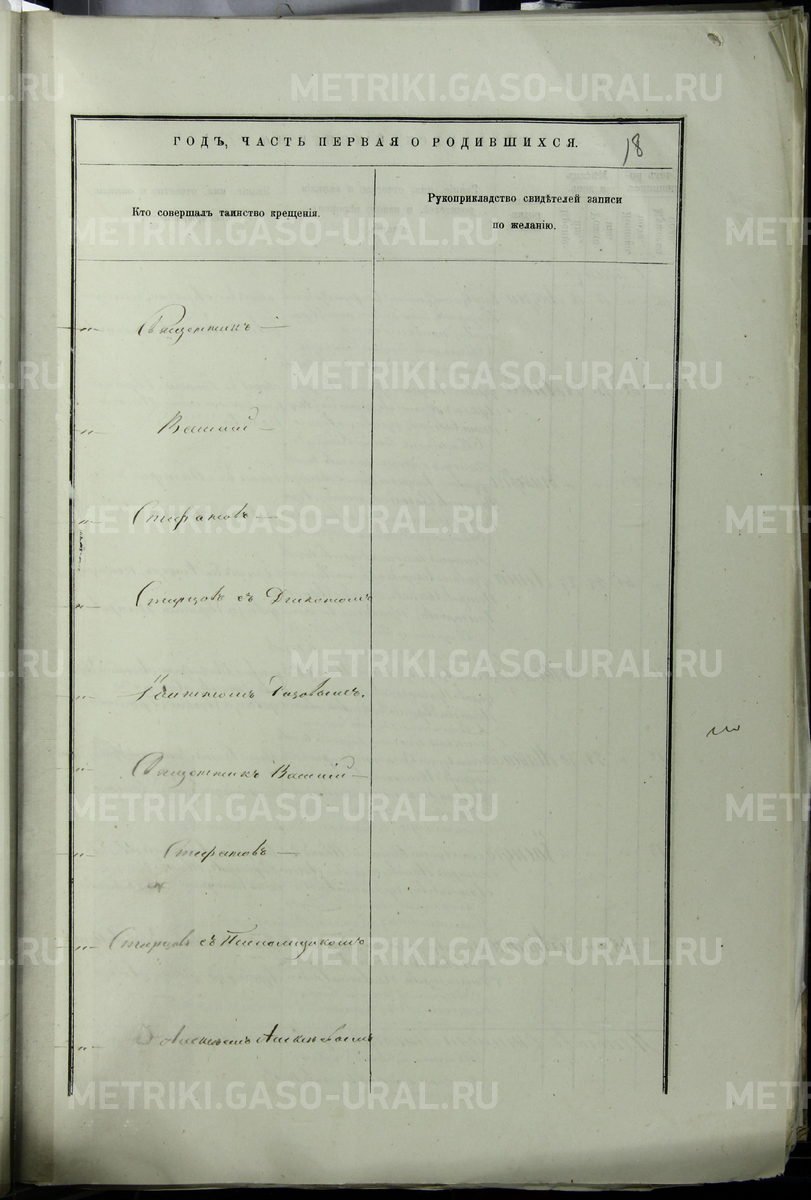 METRIKI.GASO-URAL.RU
ГОДЪ, ЧАСТЬ ПЕРВАЯ О РОДИВШИХСЯ.
18
Кто совершалъ таинство крещенія.
Рукоприкладство свидѣтелей записи
по желанію.
Священникъ —
Василій —
Стефановъ —
Старцовъ съ Діакономъ
Священникъ Василій —
Стефановъ —
Старцовъ съ Псаломщикомъ
Алексѣемъ